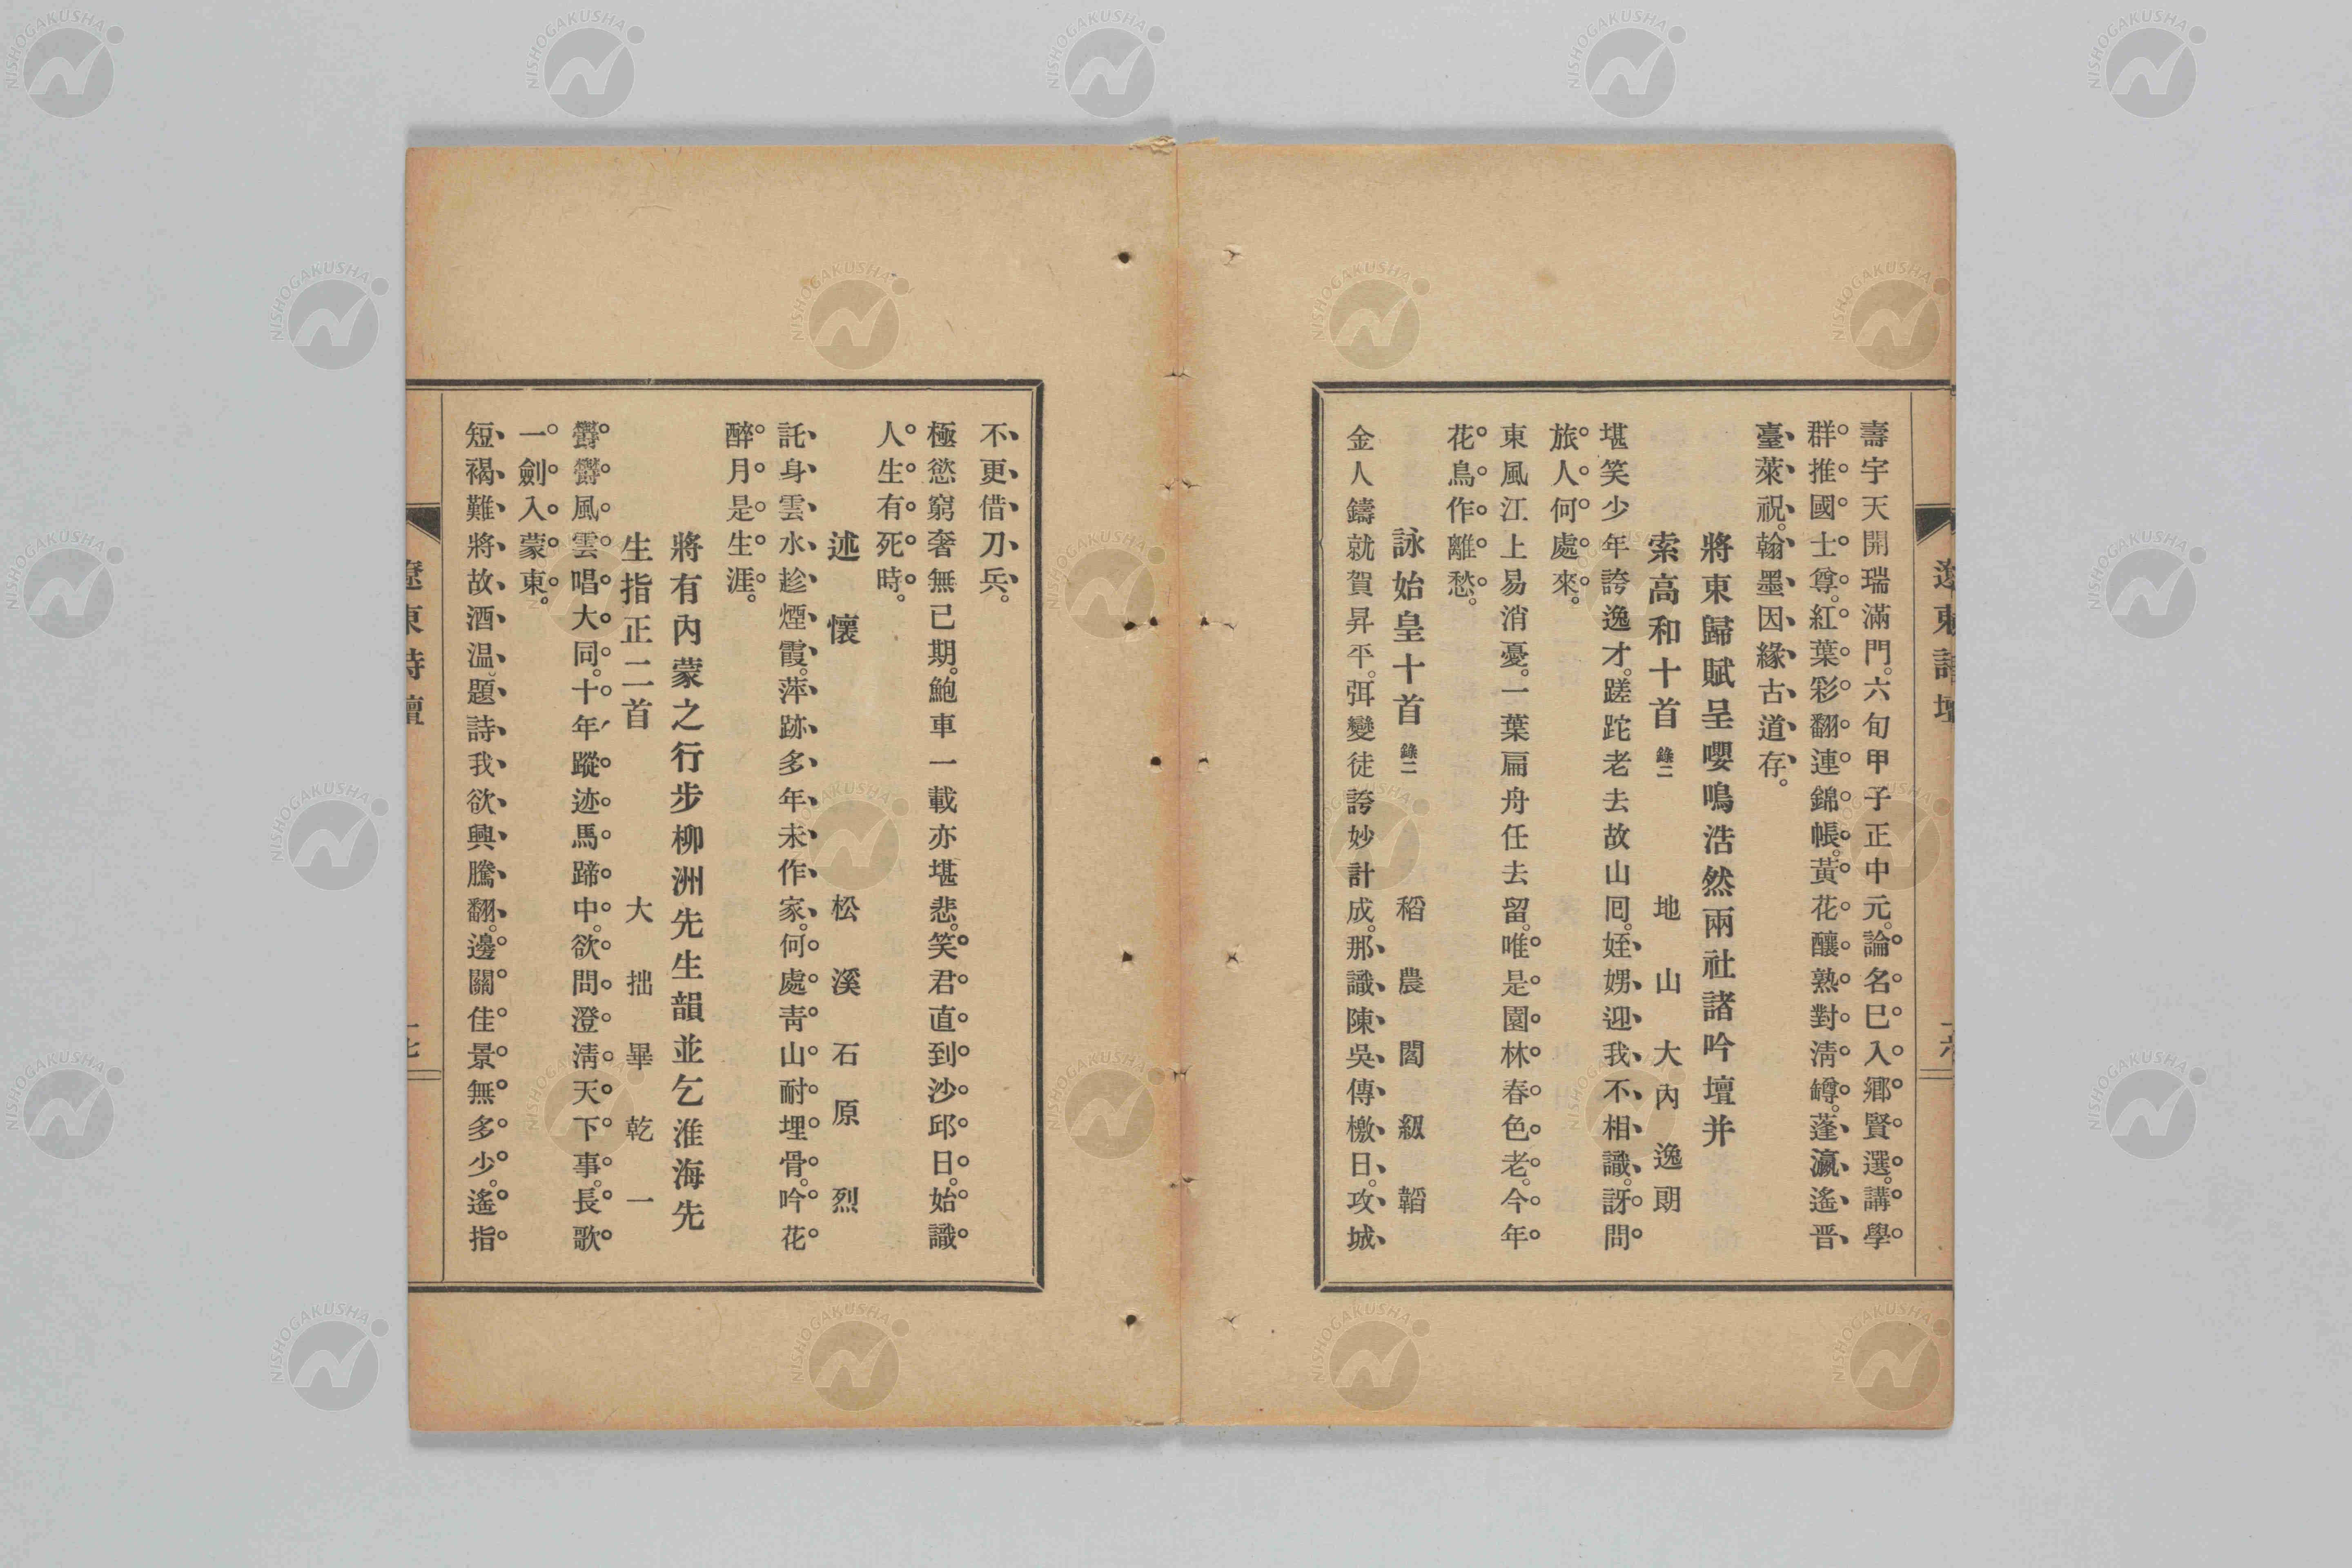 壽宇天開瑞滿門。六旬甲子正中元。論名巳入鄉賢選。講學
群推國士尊。紅葉彩翻連錦帳。黃花釀熟對淸罇。蓬瀛遙晋
臺萊祝。翰墨因緣古道存。
將東歸賦呈嚶鳴浩然兩社諸吟壇并
索高和十首 錄二 地山大內逸朗
堪笑少年誇逸才。蹉跎老去故山囘。姪娚迎我不相識。訝問
旅人何處來。
東風江上易消憂。一葉扁舟任去留。唯是園林春色老。今年
花鳥作離愁。
詠始皇十首 錄二 稻農閻級韜
金人鑄就賀昇平。弭變徒誇妙計成。那識陳吳傳檄日。攻城
遼東詩壇
不更借刀兵。
極慾窮奢無已期。鮑車一載亦堪悲。笑君直到沙邱日。始識
人生有死時。
述懷 松溪石原烈
託身雲水趁煙霞。萍跡多年未作家。何處靑山耐埋骨。吟花
醉月是生涯。
將有內蒙之行步柳洲先生韻並乞淮海先
生指正二首 大拙畢乾一
欝欝風雲唱大同。十年蹤迹馬蹄中。欲問澄淸天下事。長歌
一劍入蒙東。
短褐難將故酒温。題詩我欲興騰翻。邊關佳景無多少。遙指
遼東詩壇
NISHOGAKUSHA